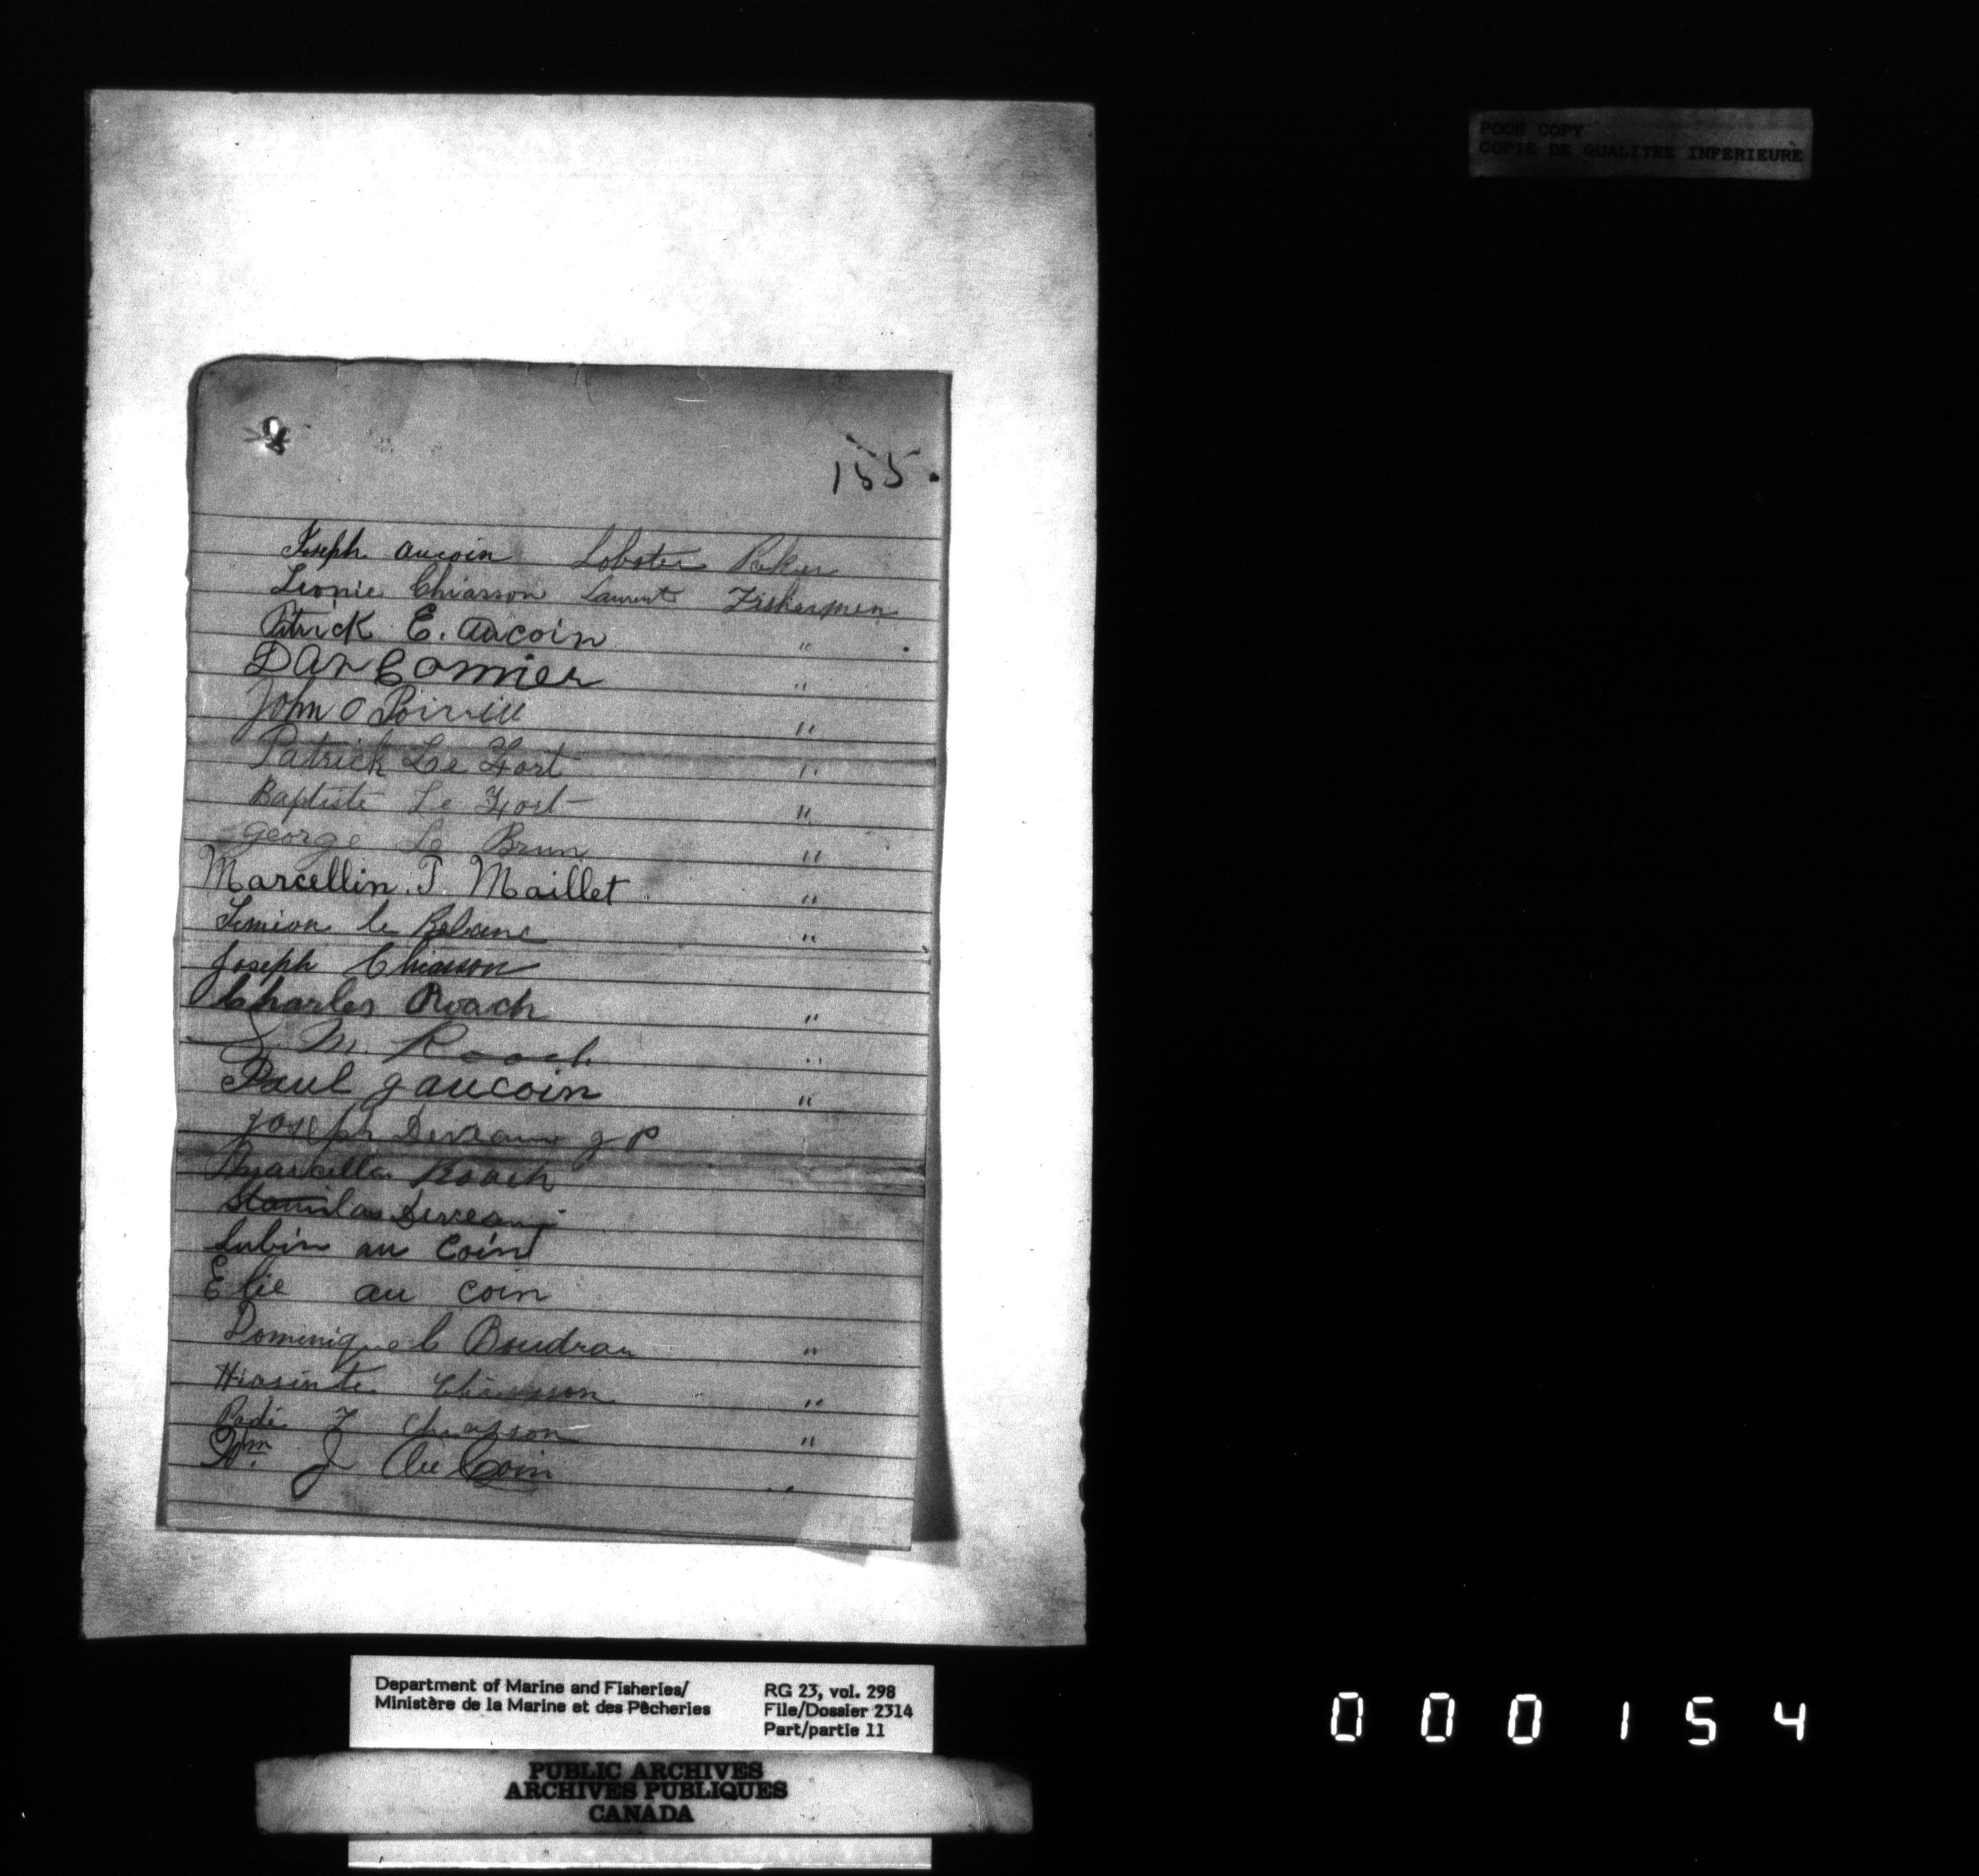 POOR COPY
COPIE DE QUALITEE INFERIEURE
155.
Joseph Aucoin Lobster Paker
Leonie Chiasson Laurent Fishermen
Patrick E. Aucoin "
Dan Cormier "
John O Poirier "
Patrick Le Fort "
Baptiste Le Fort "
George Le Brun "
Marcellin. J. Maillet "
Simion le "
Joseph Chiasson
Charles Roach "
J. M. Roach "
Paul J aucoin "
Joseph Deveau J P
Marcellin Roach
Stanislas Deveau
Lubin au Coin
Elie au coin
Dominique C Boudrau "
Hiasinte Chiasson "
Padé F Chiasson "
Wm. J Au Coin "
Department of Marine and Fisheries/ RG 23, vol. 298
Ministère de la Marine et des Pêcheries File/Dossier 2314
Part/partie 11
PUBLIC ARCHIVES
ARCHIVES PUBLIQUES
CANADA
000154